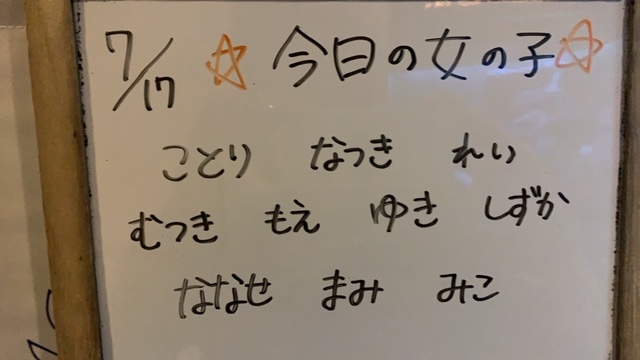 7/17 ☆ 今日の女の子☆
ことり なつき れい
むつき もえ ゆき しずか
ななせ まみ みこ